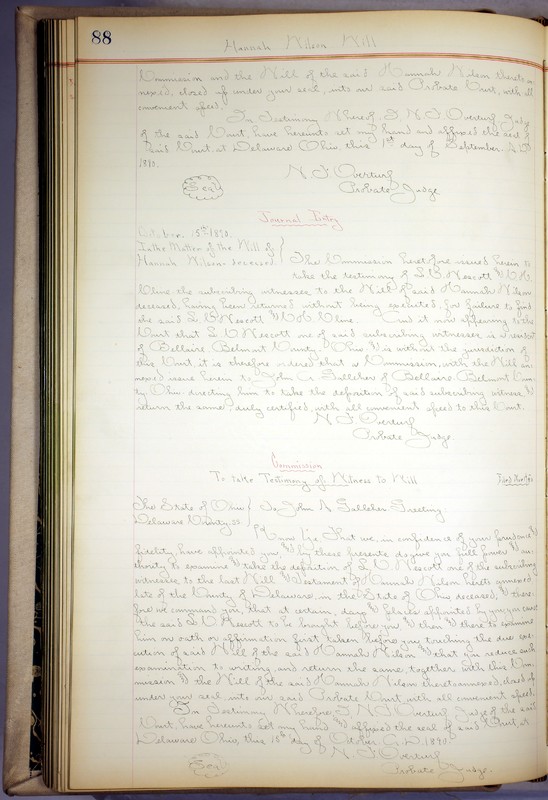 88
Hannah Wilson Will
Commission and the Will of the said Hannah Wilson thereto an-
nexed, closed up under your seal, into our said Probate Court, with all
convenient speed.
In Testimony Whereof, I, N. F. Overturf Judge
of the said Court, have hereunto set my hand and affixed the seal of
said Court, at Delaware Ohio, this 1st day of September A.D.
1890.
N. F. Overturf
Seal
Probate Judge
Journal Entry
October 15th 1890.
In the Matter of the Will of
Hannah Wilson deceased
The Commission heretofore issued herein to
take the testimony of L. W. Wescott &
Cline the subscribing witnesses to the Will of said Hannah Wilson
deceased, having been returned without being executed, for failure to find
the said Wescott & Cline. And it now appearing to the
Court that Wescott one of said subscribing witnesses is a resident
of Bellaire, Belmont County, Ohio & is without the jurisdiction of
this Court, it is therefore ordered that a Commission, with the Will an-
nexed issue herein to John A. Gallcher of Bellaire Belmont Coun-
ty Ohio, directing him to take the deposition of said subscribing witness, &
return the same, duly certified, with all convenient speed to this Court.
N. F. Overturf
Probate Judge.
Commission
To take Testimony of Witness to Will
The State of Ohio
Delaware County, ss
To John A Gallcher Greeting
Know Ye, That we, in confidence of your prudence &
fidelity, have appointed you, & by these presents do give you full power & au-
thority to examine & take the deposition of Wescott one of the subscribing
witnesses to the last Will & Testament of Hannah Wilson hereto annexed
late of the County of Delaware, in the State of Ohio deceased, & there-
fore we command you, that at certain, days & places appointed by you, you cause
the said Wescott to be brought before you & then & there to examine
him on oath or affirmation first taken before you touching the due exe-
cution of said Will of the said Hannah Wilson & that you reduce such
examination to writing, and return the same, together with this Com-
mission & the Will of the said Hannah Wilson thereto annexed, closed up
under your seal, into our said Probate Court, with all convenient speed.
In Testimony Wherefore, I, N. F. Overturf, Judge of the said
Court, have hereunto set my hand & affixed the seal of said Court, at
Delaware Ohio, this 15th day of October, A.D. 1890.
N. F. Overturf
Seal
Probate Judge.